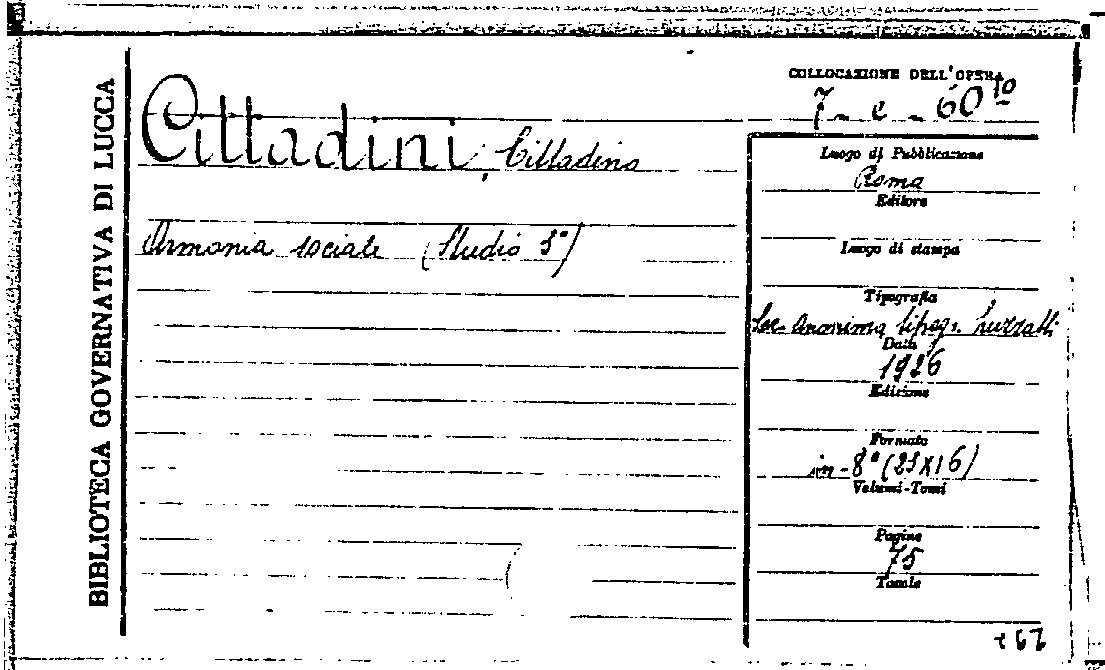 BIBLIOTECA GOVERNATIVA DI LUCCA
COLLOCAZIONE DELL'OPERA
7 - e - 60 10
Cittadini, Cittadino
Armonia sociale (Studio 3°)
Luogo di Pubblicazione
Roma
Editore
Luogo di stampa
Tipografia
Soc. Anonima tipogr. Luzzatti
Data
1926
Edizione
Formato
in-8° (23X16)
Volumi-Tomi
Pagine
75
Tavole